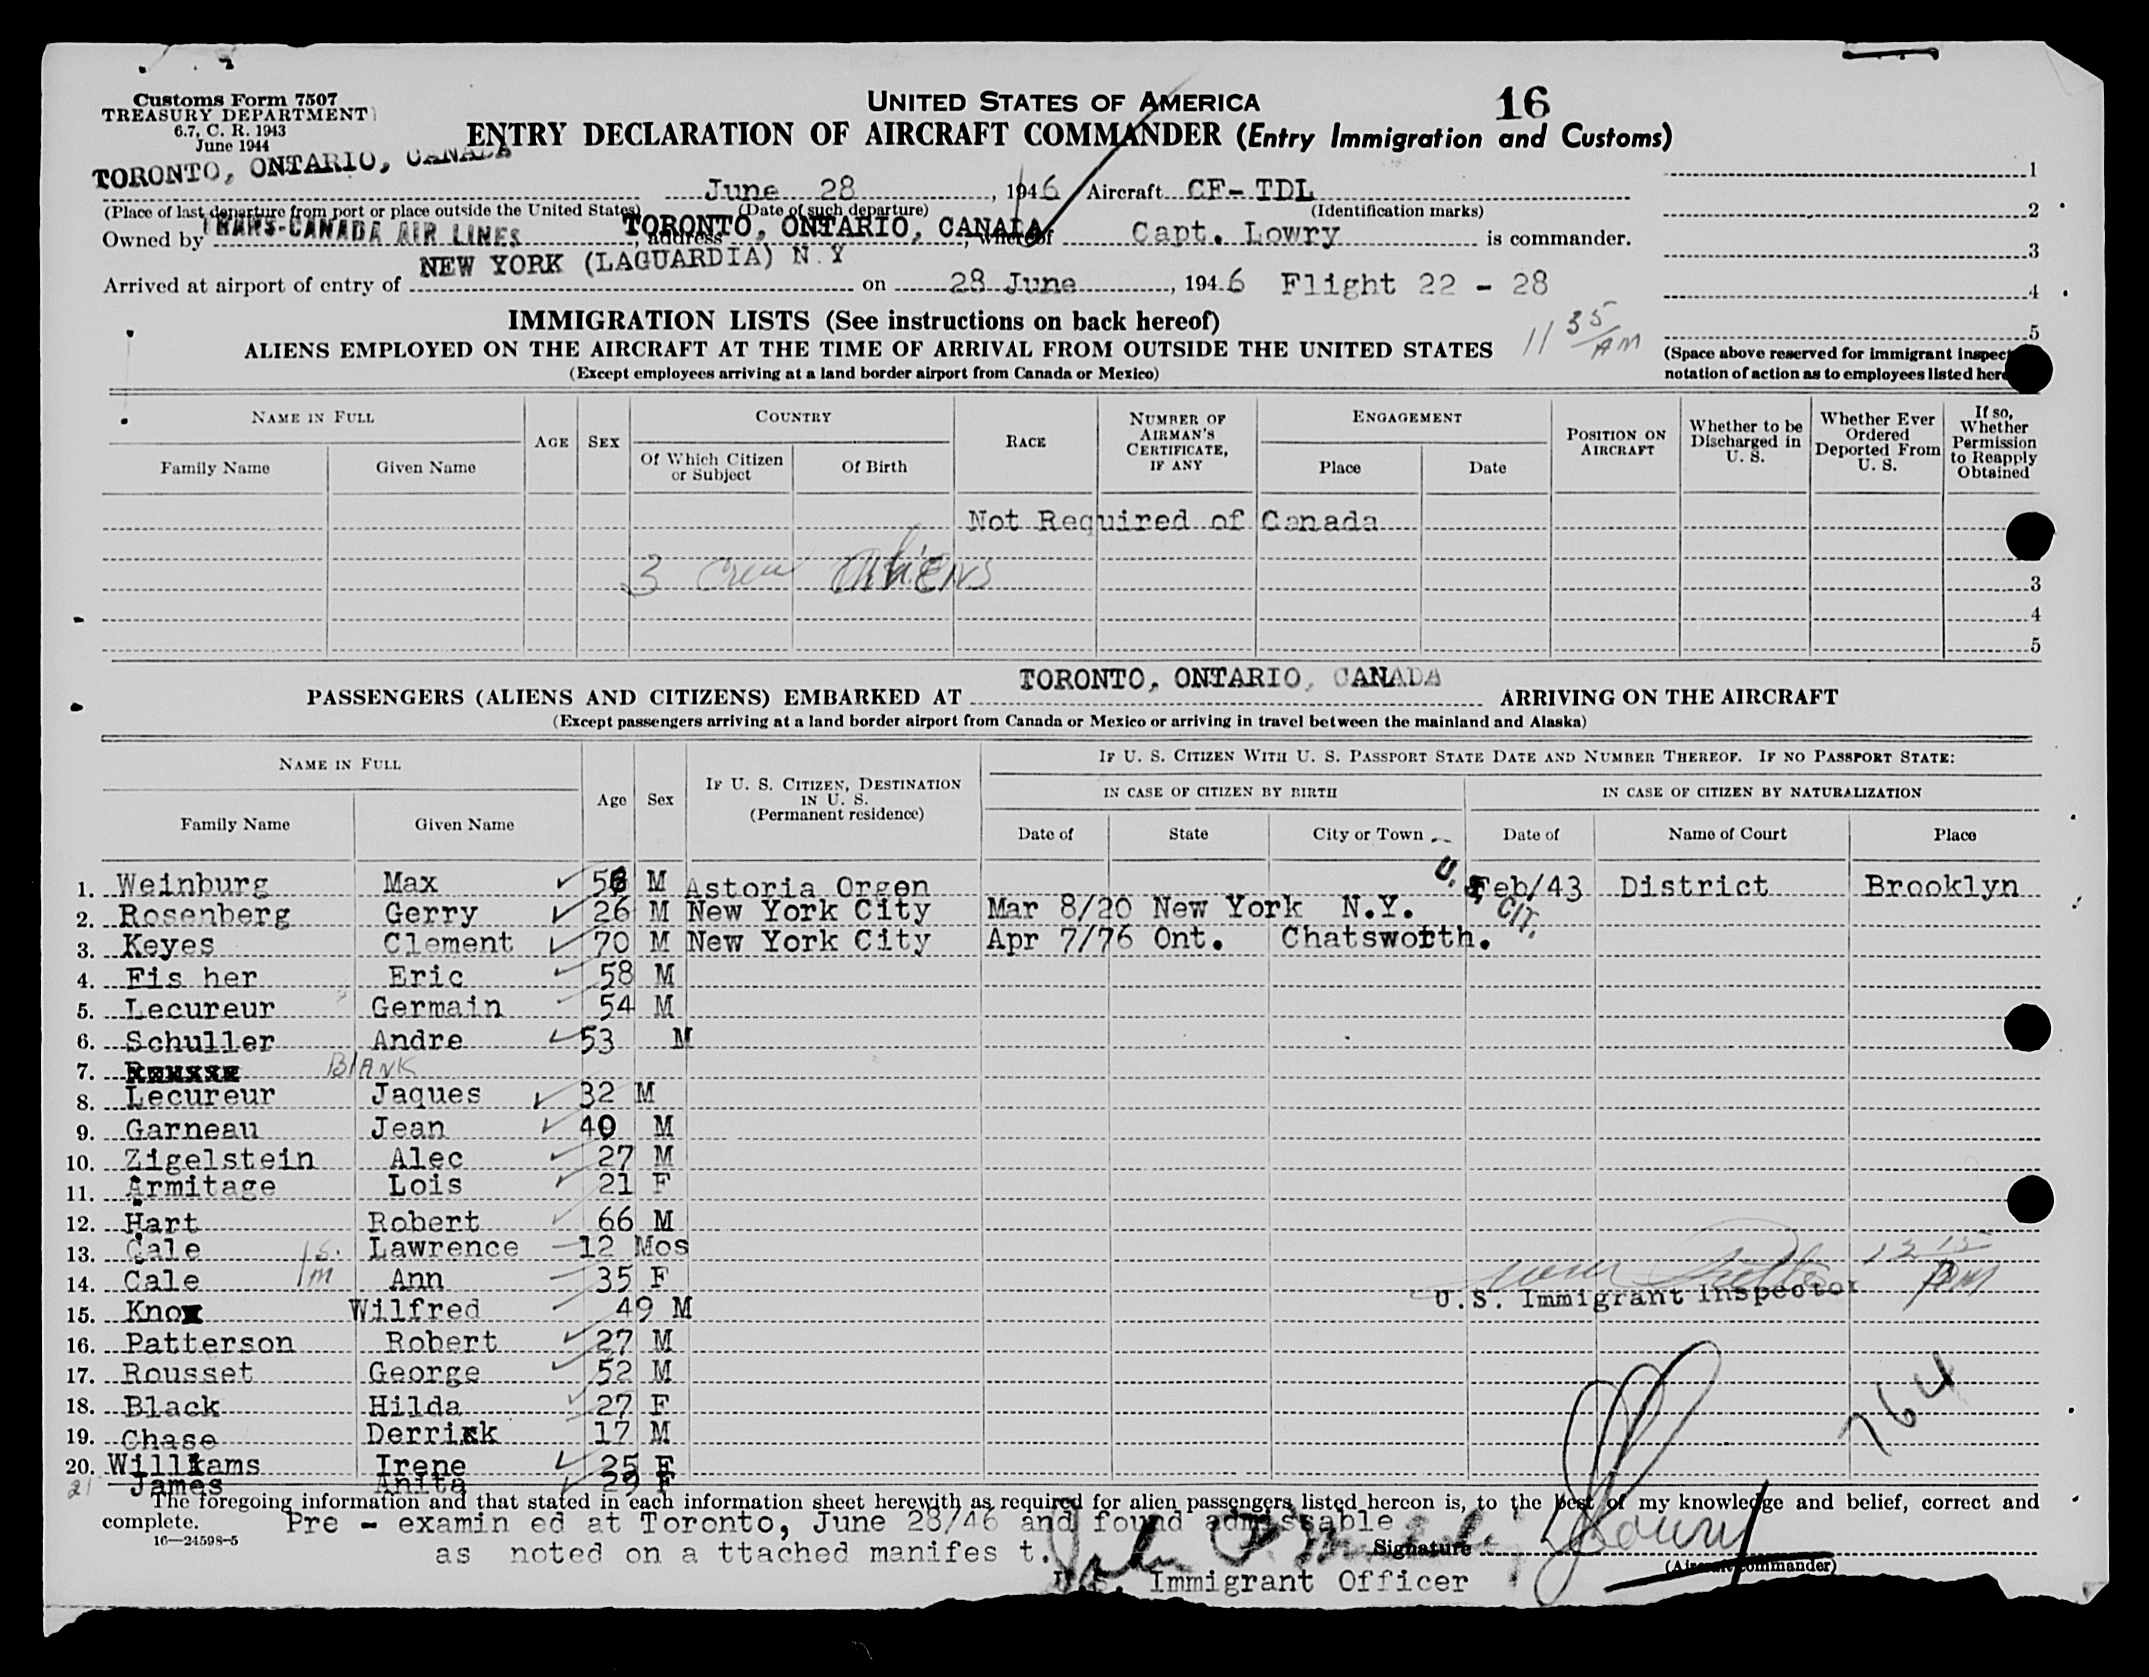 Customs Form 7507
TREASURY DEPARTMENT
6.7, C. R. 1943
June 1944
UNITED STATES OF AMERICA
16
ENTRY DECLARATION OF AIRCRAFT COMMANDER (Entry Immigration and Customs)
TORONTO, ONTARIO, CANADA June 28, 1946 Aircraft CF-TDL
(Place of last departure from port or place outside the United States) (Date of such departure) (Identification marks)
Owned by TRANS-CANADA AIR LINES, address TORONTO, ONTARIO, CANADA, whereof Capt. Lowry is commander.
Arrived at airport of entry of NEW YORK (LAGUARDIA) N.Y on 28 June, 1946 Flight 22 - 28
1
2
3
4
5
IMMIGRATION LISTS (See instructions on back hereof)
11 35/AM
ALIENS EMPLOYED ON THE AIRCRAFT AT THE TIME OF ARRIVAL FROM OUTSIDE THE UNITED STATES
(Except employees arriving at a land border airport from Canada or Mexico)
(Space above reserved for immigrant inspect
notation of action as to employees listed her
NAME IN FULL
Family Name Given Name
AGE SEX
COUNTRY
Of Which Citizen or Subject Of Birth
RACE
NUMBER OF AIRMAN'S CERTIFICATE, IF ANY
ENGAGEMENT
Place Date
POSITION ON AIRCRAFT
Whether to be Discharged in U. S.
Whether Ever Ordered Deported From U. S.
If so, Whether Permission to Reapply Obtained
Not Required of Canada
3 crew aliens
3
4
5
PASSENGERS (ALIENS AND CITIZENS) EMBARKED AT TORONTO, ONTARIO, CANADA ARRIVING ON THE AIRCRAFT
(Except passengers arriving at a land border airport from Canada or Mexico or arriving in travel between the mainland and Alaska)
NAME IN FULL
Family Name Given Name
Age Sex
IF U. S. CITIZEN, DESTINATION IN U. S. (Permanent residence)
IF U. S. CITIZEN WITH U. S. PASSPORT STATE DATE AND NUMBER THEREOF. IF NO PASSPORT STATE:
IN CASE OF CITIZEN BY BIRTH IN CASE OF CITIZEN BY NATURALIZATION
Date of State City or Town Date of Name of Court Place
1. Weinburg Max M Astoria Orgen Feb/43 District Brooklyn
U.S. CIT.
2. Rosenberg Gerry 26 M New York City Mar 8/20 New York N.Y.
3. Keyes Clement 70 M New York City Apr 7/76 Ont. Chatsworth.
4. Fis her Eric 58 M
5. Lecureur Germain 54 M
6. Schuller Andre 53 M
7. BlANK
8. Lecureur Jaques 32 M
9. Garneau Jean 40 M
10. Zigelstein Alec 27 M
11. Armitage Lois 21 F
12. Hart Robert 66 M
13. Cale 1 s. Lawrence 12 Mos
14. Cale 1 m Ann 35 F
15. Knox Wilfred 49 M
16. Patterson Robert 27 M
17. Rousset George 52 M
18. Black Hilda 27 F
19. Chase Derrick 17 M
20. Williams Irene 25 F
21 James Anita 29 F
12 15/PM
U.S. Immigrant Inspector
764
The foregoing information and that stated in each information sheet herewith as required for alien passengers listed hereon is, to the best of my knowledge and belief, correct and
complete. Pre - examin ed at Toronto, June 28/46 and found admissable
16—24598-5
as noted on a ttached manifes t.
Signature Lowry
(Aircraft commander)
U.S. Immigrant Officer